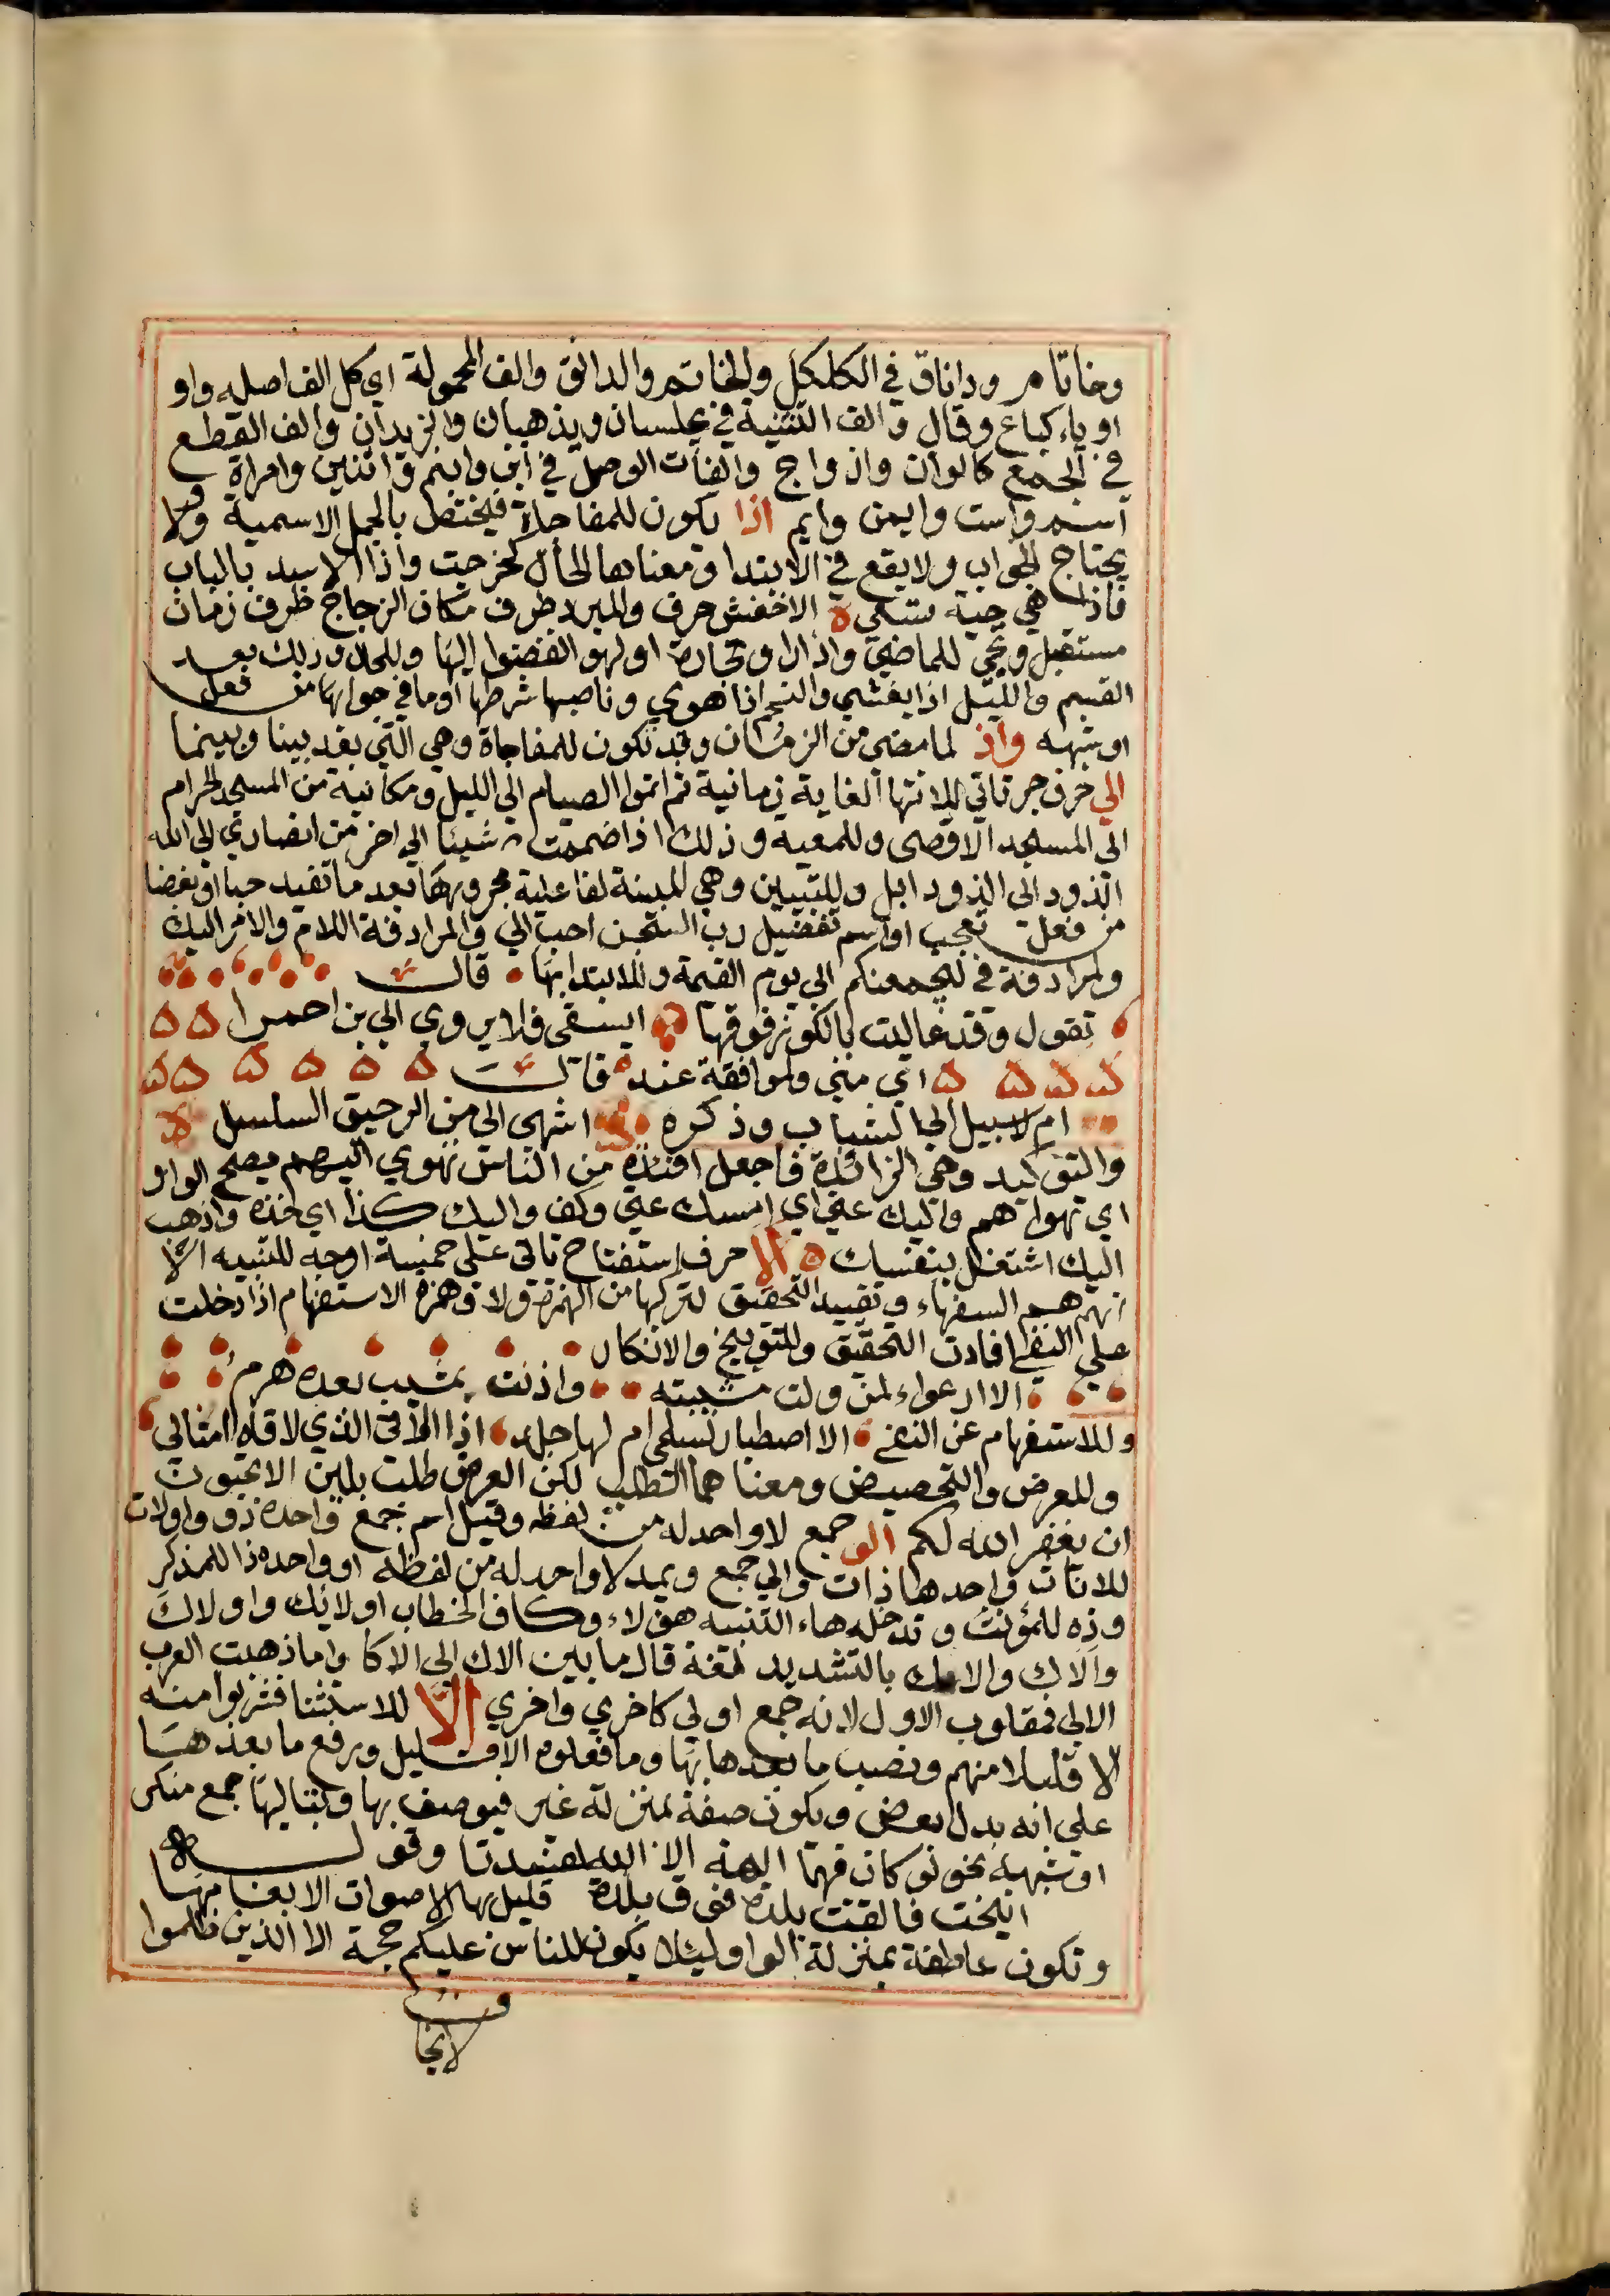 وخاتام وداناق في الكلكل والخاتم والدانق والف المحولة اي كل الف اصله واو
او ياء كباع وقال والف التثنية في يجلسان ويذهبان والزيدان والف القطع
في الجمع كالوان وازواج والفات الوصل في ابن وابنم واثنين وامراة
اسم واست وايمن وايم اذا يكون للمفاجاة فيختص بالجمل الاسمية ولا
يحتاج لجواب ولا يقع في الابتدا ومعناها الحال كخرجت واذا الاسد بالباب
فاذا هي حية تسعي ه الاخفش حرف والمبرد ظرف مكان الزجاج ظرف زمان
مستقبل وتجي للماضي واذا راوا تجارة او لهوا انفضوا اليها وللحال وذلك بعد
القسم والليل اذا يغشي والنجم اذا هوي وناصبها شرطها او ما في جوابها من فعل
او شبهه واذ لما مضي من الزمان وقد تكون للمفاجاة وهي التي بعد بينا وبينما
الي حرف جر تاتي للانتها الغاية زمانية ثم اتموا الصيام الي الليل ومكانية من المسجد الحرام
الي المسجد الاقصي وللمعيه وذلك اذا ضممت شيئا الي اخر من انصاري الي الله
الذود الي الذود ابل وللتبيين وهي المبينة لفاعلية مجرورها بعد ما تفيد حبا او بغضا
من فعل تعجب او اسم تفضيل رب السجن احب الي والمرادفة اللام والامر اليك
ولمرادفة في ليجمعنكم الي يوم القيمة وللابتدا بها قالت
تقول وقد عاليت بالكور فوقها ايسقي فلا يروي الي بن احمرا
اي مني ولموافقة عند قالت
ام لا سبيل الي الشباب وذكره اشهي الي من الرحيق السلسل
والتوكيد وهي الزائدة فاجعل افئدة من الناس تهوي اليهم بفتح الواو
اي تهواهم واليك عني اي امسك عني وكف واليك كذا اي خذه واذهب
اليك اشتغل بنفسك ه الا حرف استفتاح تاتي علي خمسة اوجه للتنبيه الا
انهم هم السفهاء وتفييد التحقيق لتركبها من الهمزة ولا وهمزة الاستفهام اذا دخلت
علي النفي افادت التحقيق وللتوبيخ والانكار
الا ارعواء لمن ولت شبيبته واذنت بمشيب بعده هرم
وللاستفهام عن النفي الا اصطبار لسلمي ام لها جلد اذا الاقي الذي لاقاه امثالي
وللعرض والتحضيض ومعناهما الطلب لكن العرض طلب بلين الا تحبون
ان يغفر الله لكم الو جمع لا واحد له من لفظه وقيل اسم جمع واحده ذو واولات
للاناث واحدها ذات والي جمع ويمد لا واحد له من لفظه او واحده ذا للمذكر
وذه للمؤنث وتدخله هاء التنبيه هولاء وكاف الخطاب اولائك واولاك
والاك بالتشديد لغة قال ما بين الاك الي الاكا واما ذهبت العرب
الالي فمقلوب الاول لانه جمع اولي كاخري واخري الا للاستثنا فشربوا منه
الا قليلا منهم ونصب ما بعدها بها وما فعلوه الا قليل ورفع ما بعدها
علي انه بدل بعض ويكون صفة بمنزلة غير فيوصف بها وبتاليها جمع منكر
او شبهه نحو لو كان فهما الهة الا الله لفسدتا وقوله
انيخت فالقت بلدة فوق بلدة قليل بها الاصوات الا بغامها
وتكون عاطفة بمنزلة الواو ليلا يكون للناس عليكم حجة الا الذين ظلموا
لا يخا